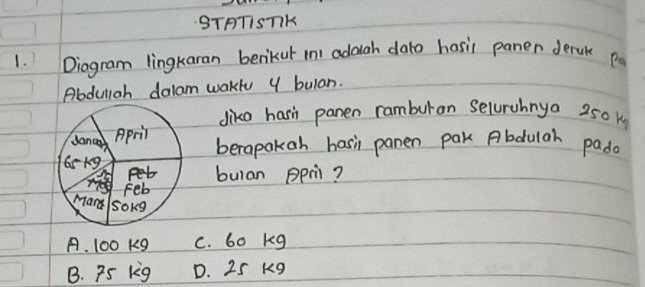 STATISTIK
1. Diagram lingkaran berikut ini adalah data hasil panen Jeruk
Abdullah dalam waktu 4 bulan.
Jika hasil panen rambutan seluruhnya 250 kg
berapakah hasil panen pak Abdulah pada
bulan April ?
Januari
65 kg
April
Feb
Feb
50kg
Maret
A. 100 kg C. 60 kg
B. 75 kg D. 25 kg